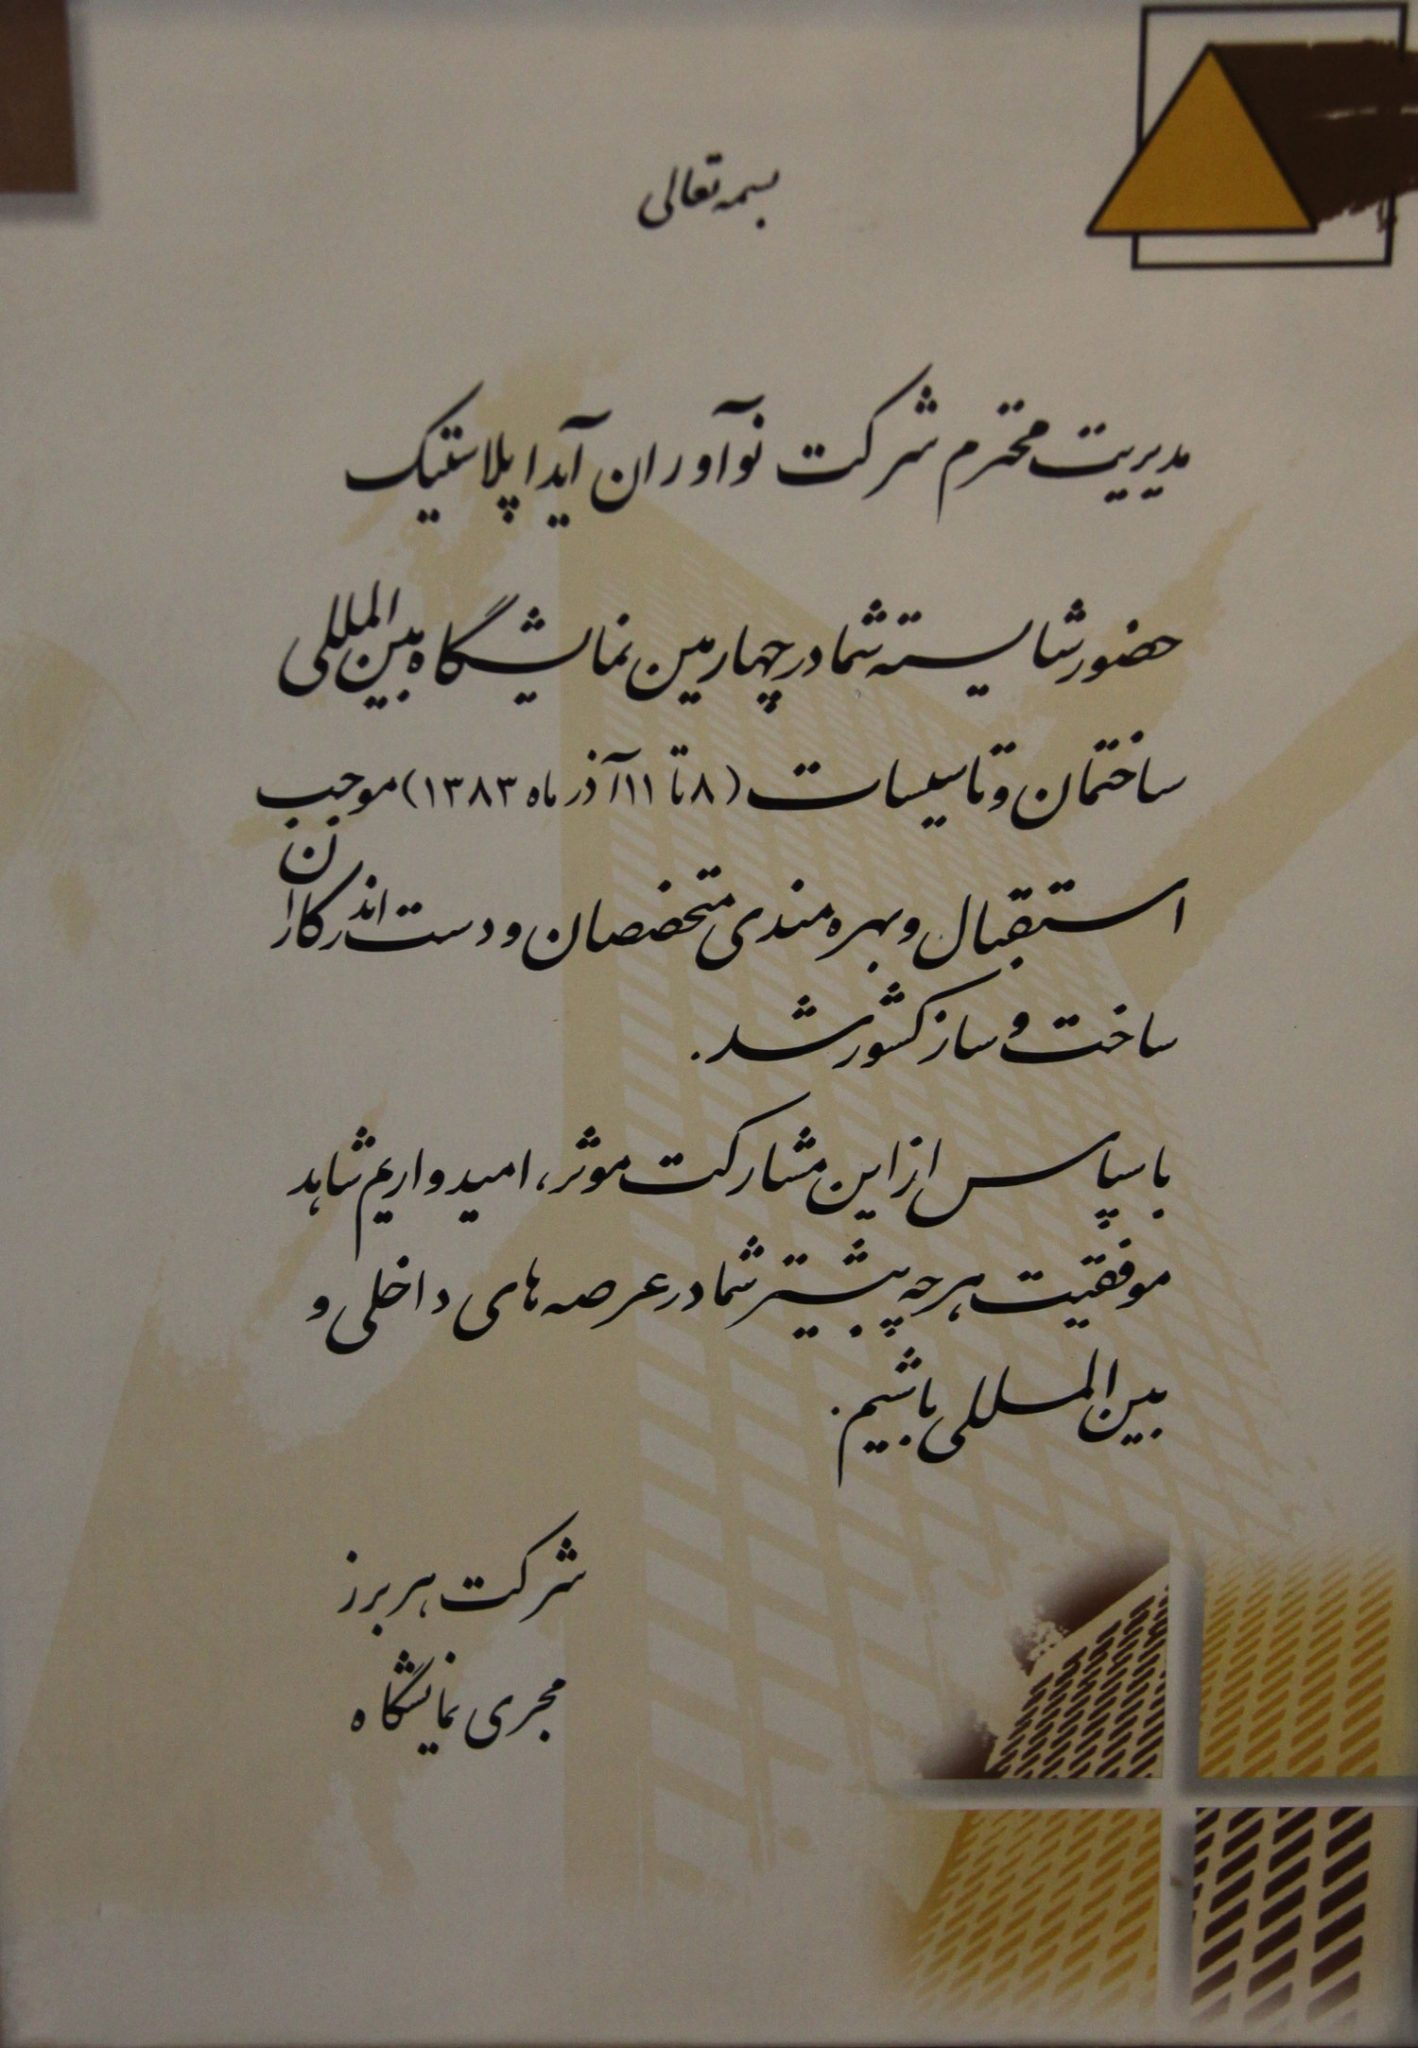 بسمه تعالی
مدیریت محترم شرکت نوآوران آیدا پلاستیک
حضور شایسته شما در چهارمین نمایشگاه بین المللی
ساختمان و تاسیسات (۸ تا ۱۱ آذر ماه ۱۳۸۳) موجب
استقبال و بهره مندی متخصصان و دست اندرکاران
ساخت و ساز کشور شد.
با سپاس از این مشارکت موثر، امیدواریم شاهد
موفقیت هر چه بیشتر شما در عرصه های داخلی و
بین المللی باشیم.
شرکت هربرز
مجری نمایشگاه